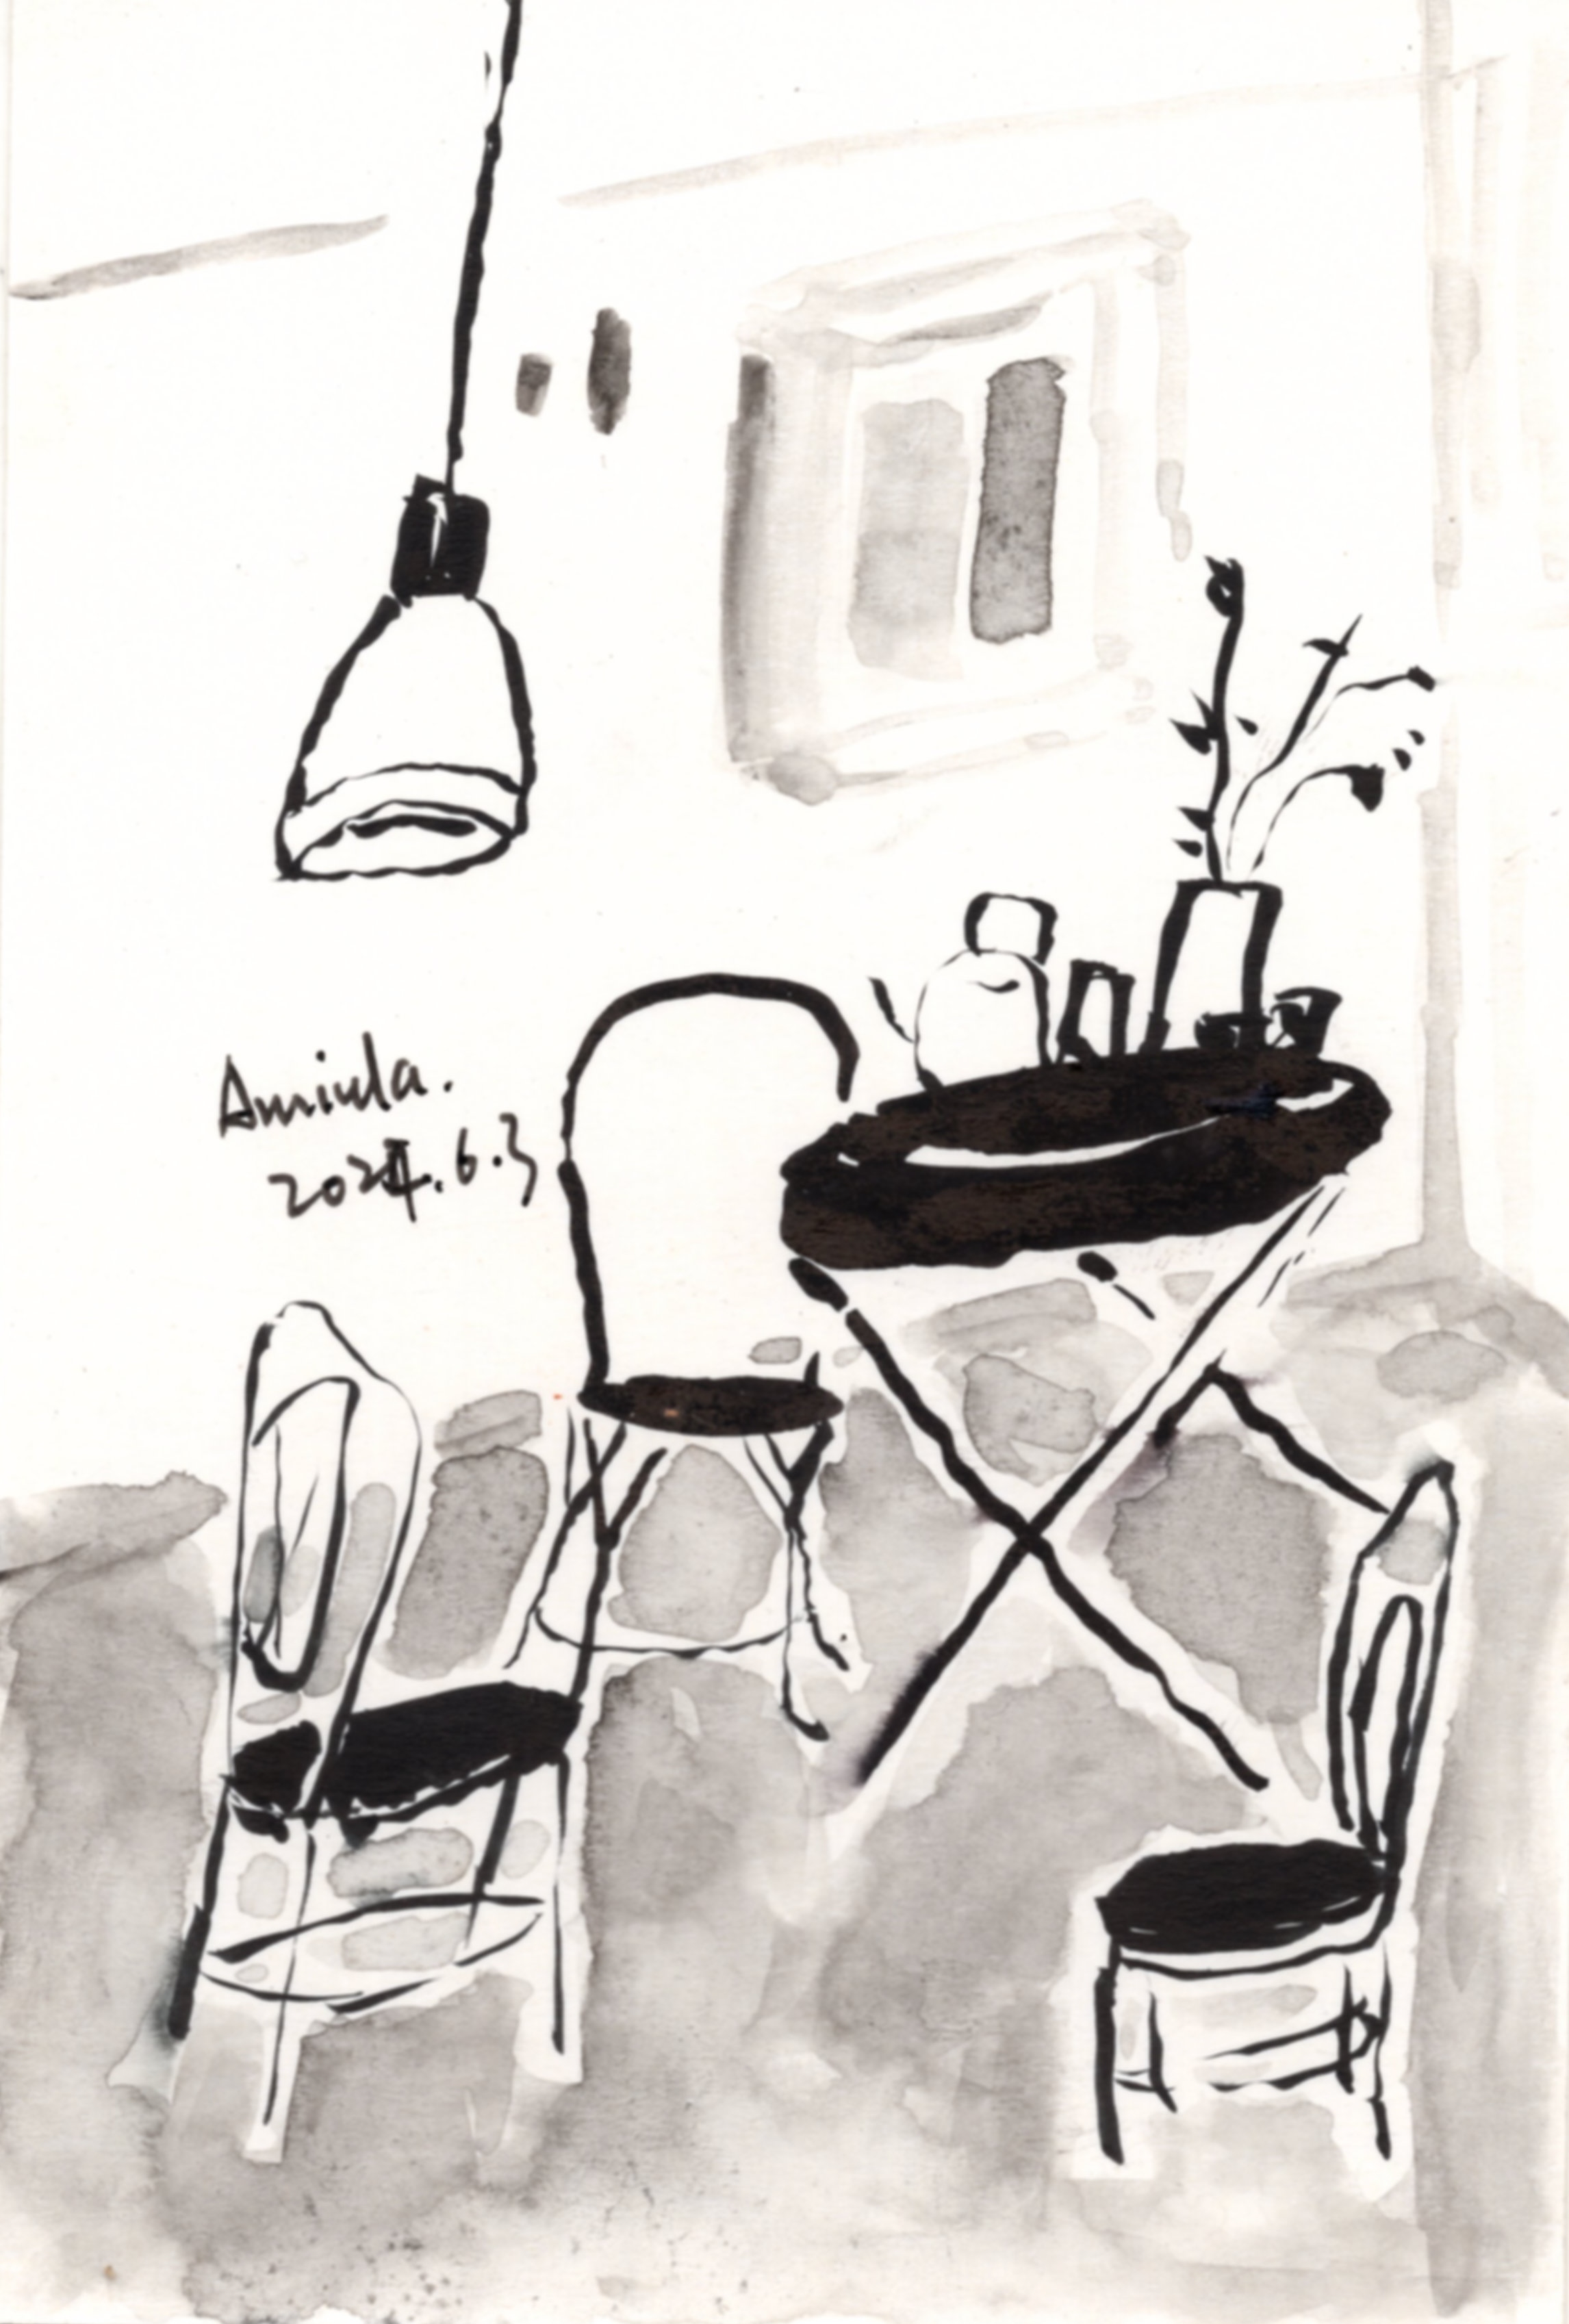 Amiula.
2024.6.3